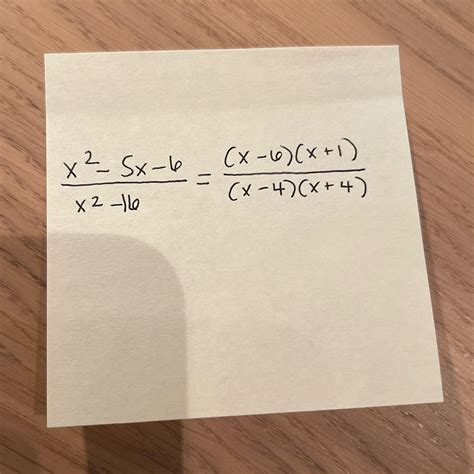 x² - 5x - 6 / x² - 16 = (x - 6)(x + 1) / (x - 4)(x + 4)